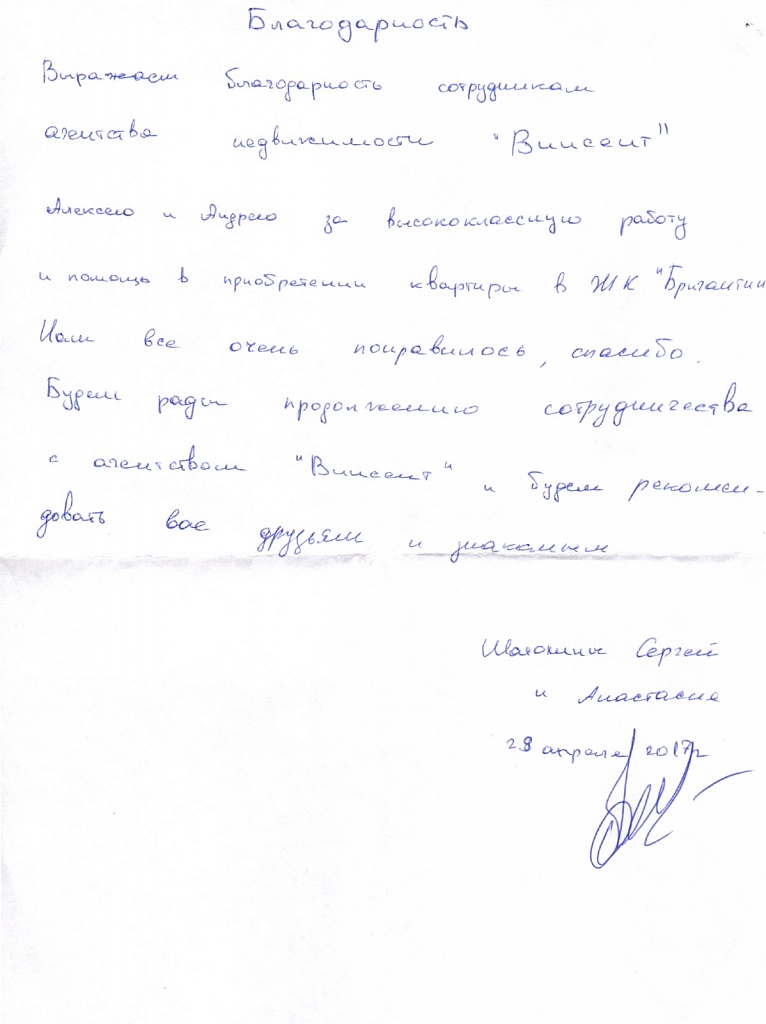 Благодарность
Выражаем благодарность сотрудникам
агентства недвижимости "Винсент"
Алексею и Андрею за высококлассную работу
и помощь в приобретении квартиры в ЖК "Бригантин
Нам все очень понравилось, спасибо.
Будем рады продолжению сотрудничества
с агентством "Винсент" и будем рекомен-
довать вас друзьям и знакомым
Сергей
и Анастасия
28 апреля 2017г